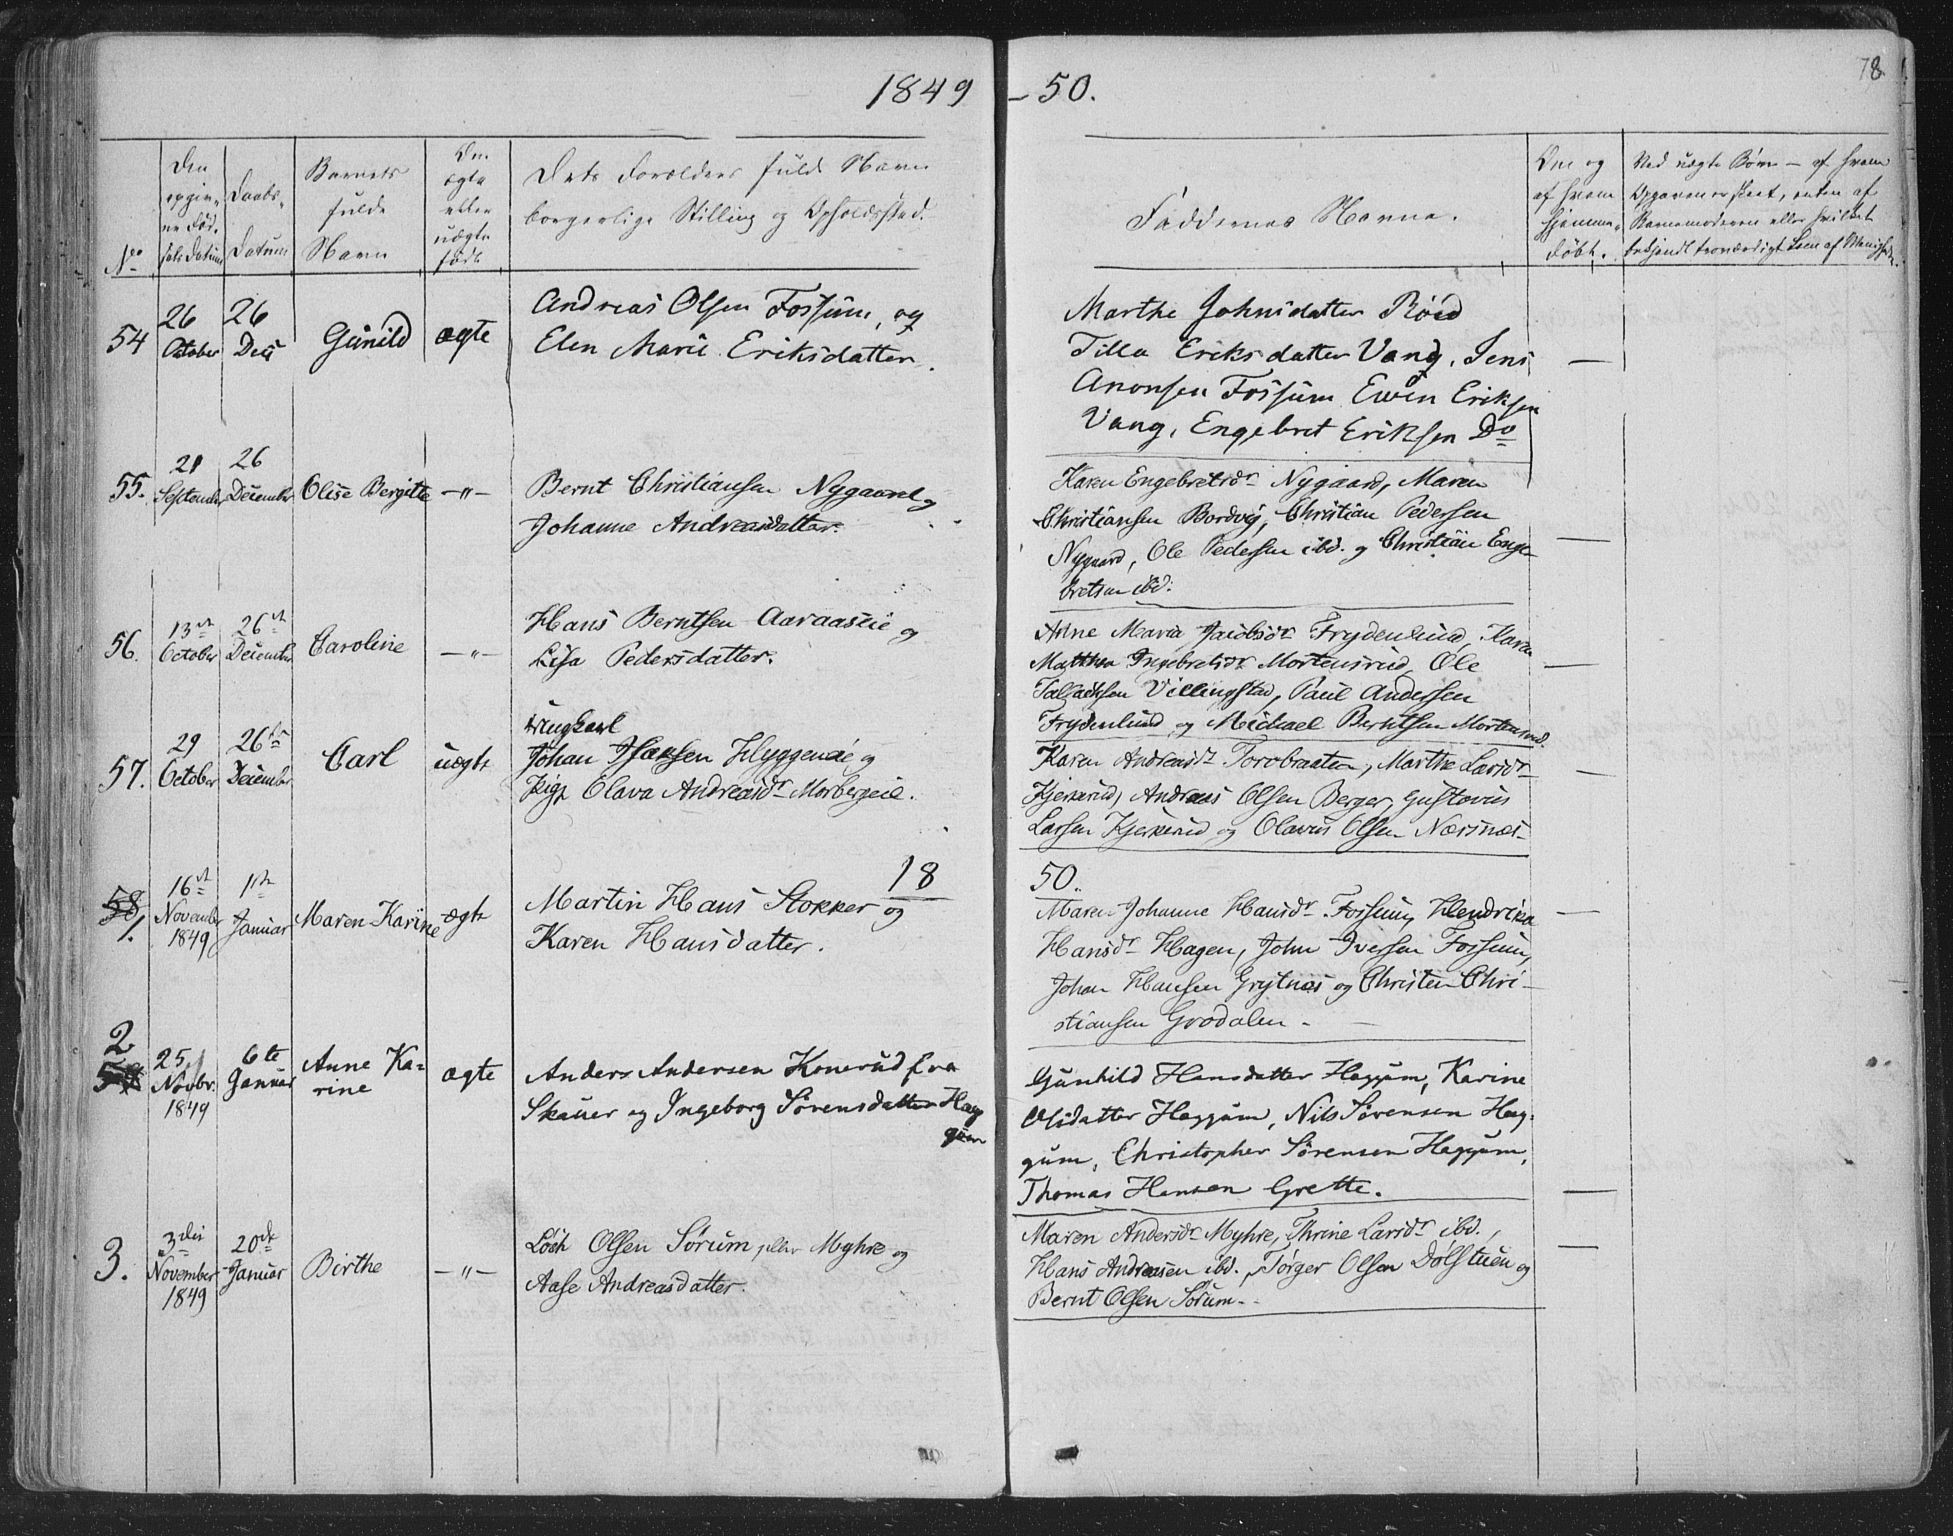 1849 – 50.
78
No
Den opgivne Fødselsdatum
Daabs-Datum
Barnets fulde Navn
Om ægte eller uægte født
Dets Forældres fulde Navn borgerlige Stilling og Opholdssted.
Faddernes Navne.
Om og af hvem hjemmedøbt.
Ved uægte Børn – af hvem Opgaven er skeet, enten af Barnemoderen eller hvilket bekjendt troværdigt Lem af Menigheden.
54
26 October
26 Dec
Gunild
ægte
Andreas Olsen Fossum, og
Elen Marie Eriksdatter.
Marthe Johnsdatter Röed
Tilla Eriksdatter Vang, Jens
Anonsen Fossum Ewen Eriksen
Vang, Engebret Eriksen Do
—
55.
21 September
26 December
Olise Bergitte
–"–
Bernt Christiansen Nygaard og
Johanne Andreasdatter.
Karen Engebretsdr Nygaard, Maren
Christiansen Bordvig, Christian Pedersen
Nygaard, Ole Pedersen ibd. og Christian Enge-
bretsen ibd.
—
56.
13de October
26de December
Caroline
–"–
Hans Berntsen Aaraaseie og
Lisa Pedersdatter.
Anne Maria Jacobsdr Frydenlund, Karen
Mathea Ingebretsdr Mortensrud, Ole
Villingstad, Paul Andersen
Frydenlund og Michael Berntsen Mortensrud.
—
57.
29 October
26de December
Carl
uægte
Ungkarl
Johan Isaksen Hyggeneie og
Pige Olava Andreasdr Morbergeie.
Karen Andreasdr Torvbraaten, Marthe Larsdr
Kjerkerud, Andreas Olsen Berger, Gustavus
Larsen Kjerkerud og Olavus Olsen Nærsnæs
—
18 50.
58 1.
16de November 1849
1ste Januar
Maren Karine
ægte
Martin Hans Stokker og
Karen Hansdatter.
Maren Johanne Hansdr Fossum, Hendrika
Hansdr Hagen, John Iversen Fossum,
Johan Hansen Grytnæs og Christen Chri-
stiansen Grodalen –
—
2
25 Novbr. 1849
6te Januar
Anne Ka-
rine
ægte
Anders Andersen Konerud fra
Skauer og Ingeborg Sörensdatter Hag
gum
Gunhild Hansdatter Haggum, Karine
Olsdatter Haggum, Nils Sörensen Hag-
gum, Christopher Sörensen Haggum,
Thomas Hansen Grette.
—
3.
3die November 1849
20de Januar
Birthe
–"–
Olsen Sörum, eller Myhre og
Aase Andreasdatter.
Maren Andersdr Myhre, Thrine Larsdr ibd.,
Hans Andreasen ibd., Törger Olsen Dölstuen og
Bernt Olsen Sörum.
—